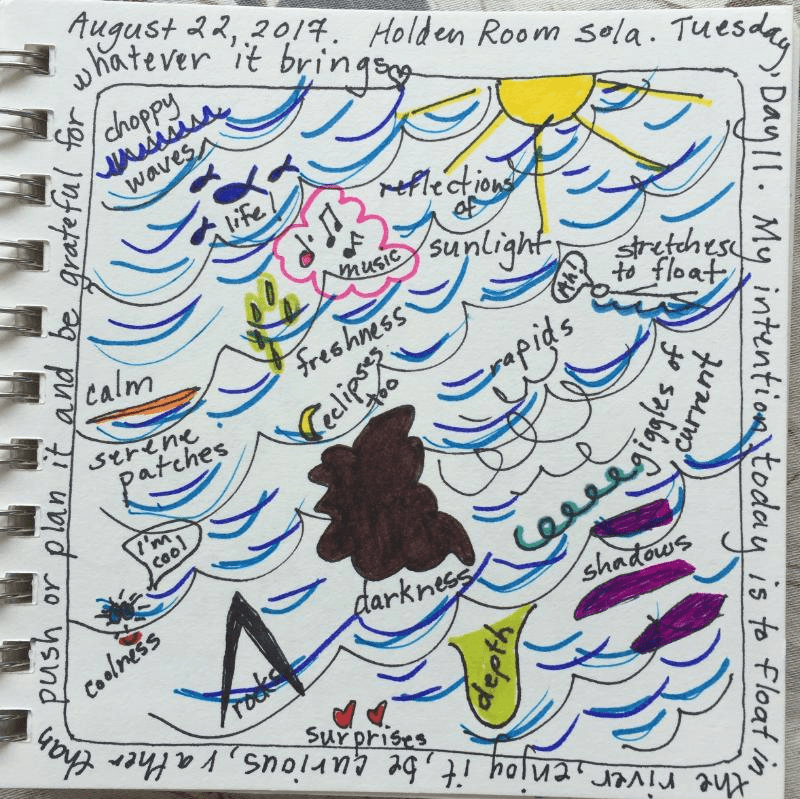 August 22, 2017. Holden Room sola. Tuesday,
Day 11. My intention today is to float in
the river, enjoy it, be curious, rather than
push or plan it and be grateful for
whatever it brings
choppy
waves
life!
music
reflections
of
sunlight
Ah!
stretches
to float
freshness
eclipses
too
rapids
giggles of
current
calm
serene
patches
i'm
cool
coolness
darkness
shadows
rocks
depth
surprises